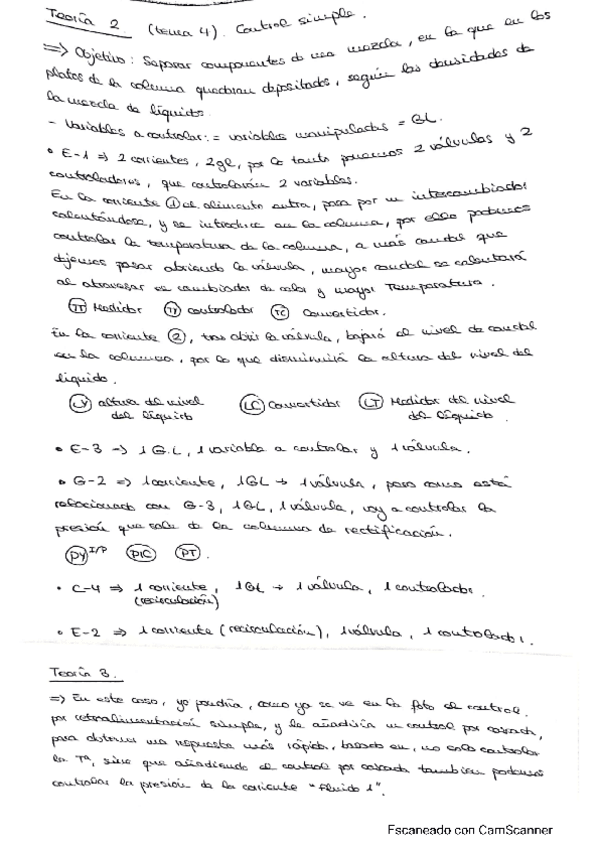 Teoría 2 (tema 4). Control simple.
=> Objetivo: Separar componentes de una mezcla, en la que en los
platos de la columna quedaran depositados, según las densidades de
la mezcla de líquidos.
- Variables a controlar: = variables manipuladas = GL.
• E-1 => 2 corrientes, 2gl, por lo tanto ponemos 2 válvulas y 2
controladores, que controlarán 2 variables.
En la corriente ① el alimento entra, pasa por un intercambiador
calentándose, y se introduce en la columna, por ello podemos
controlar la temperatura de la columna, a más caudal que
dejemos pasar abriendo la válvula, mayor caudal se calentará
al atravesar el cambiador de calor y mayor Temperatura.
TT Medidor TY controlador TC Convertidor.
En la corriente ②, tras abrir la válvula, bajará el nivel de caudal
en la columna, por lo que disminuirá la altura del nivel del
líquido.
LY altura del nivel LC Convertidor LT Medidor del nivel
del líquido del líquido.
• E-3 -> 1 G.L, 1 variable a controlar y 1 válvula.
• G-2 => 1 corriente, 1GL -> 1 válvula, pero como está
relacionado con G-3, 1GL, 1 válvula, voy a controlar la
presión que sale de la columna de rectificación.
PY I/P PIC PT.
• C-4 => 1 corriente, 1GL -> 1 válvula, 1 controlador.
(recirculación)
• E-2 => 1 corriente (recirculación), 1 válvula, 1 controlador.
Teoría 3.
=> En este caso, yo pondría, como ya se ve en la foto el control
por retroalimentación simple, y le añadiría un control por cascada,
para obtener una respuesta más rápida, basado en, no solo controlar
la Tª, sino que añadiendo el control por cascada también podemos
controlar la presión de la corriente "Fluido 1".
Escaneado con CamScanner